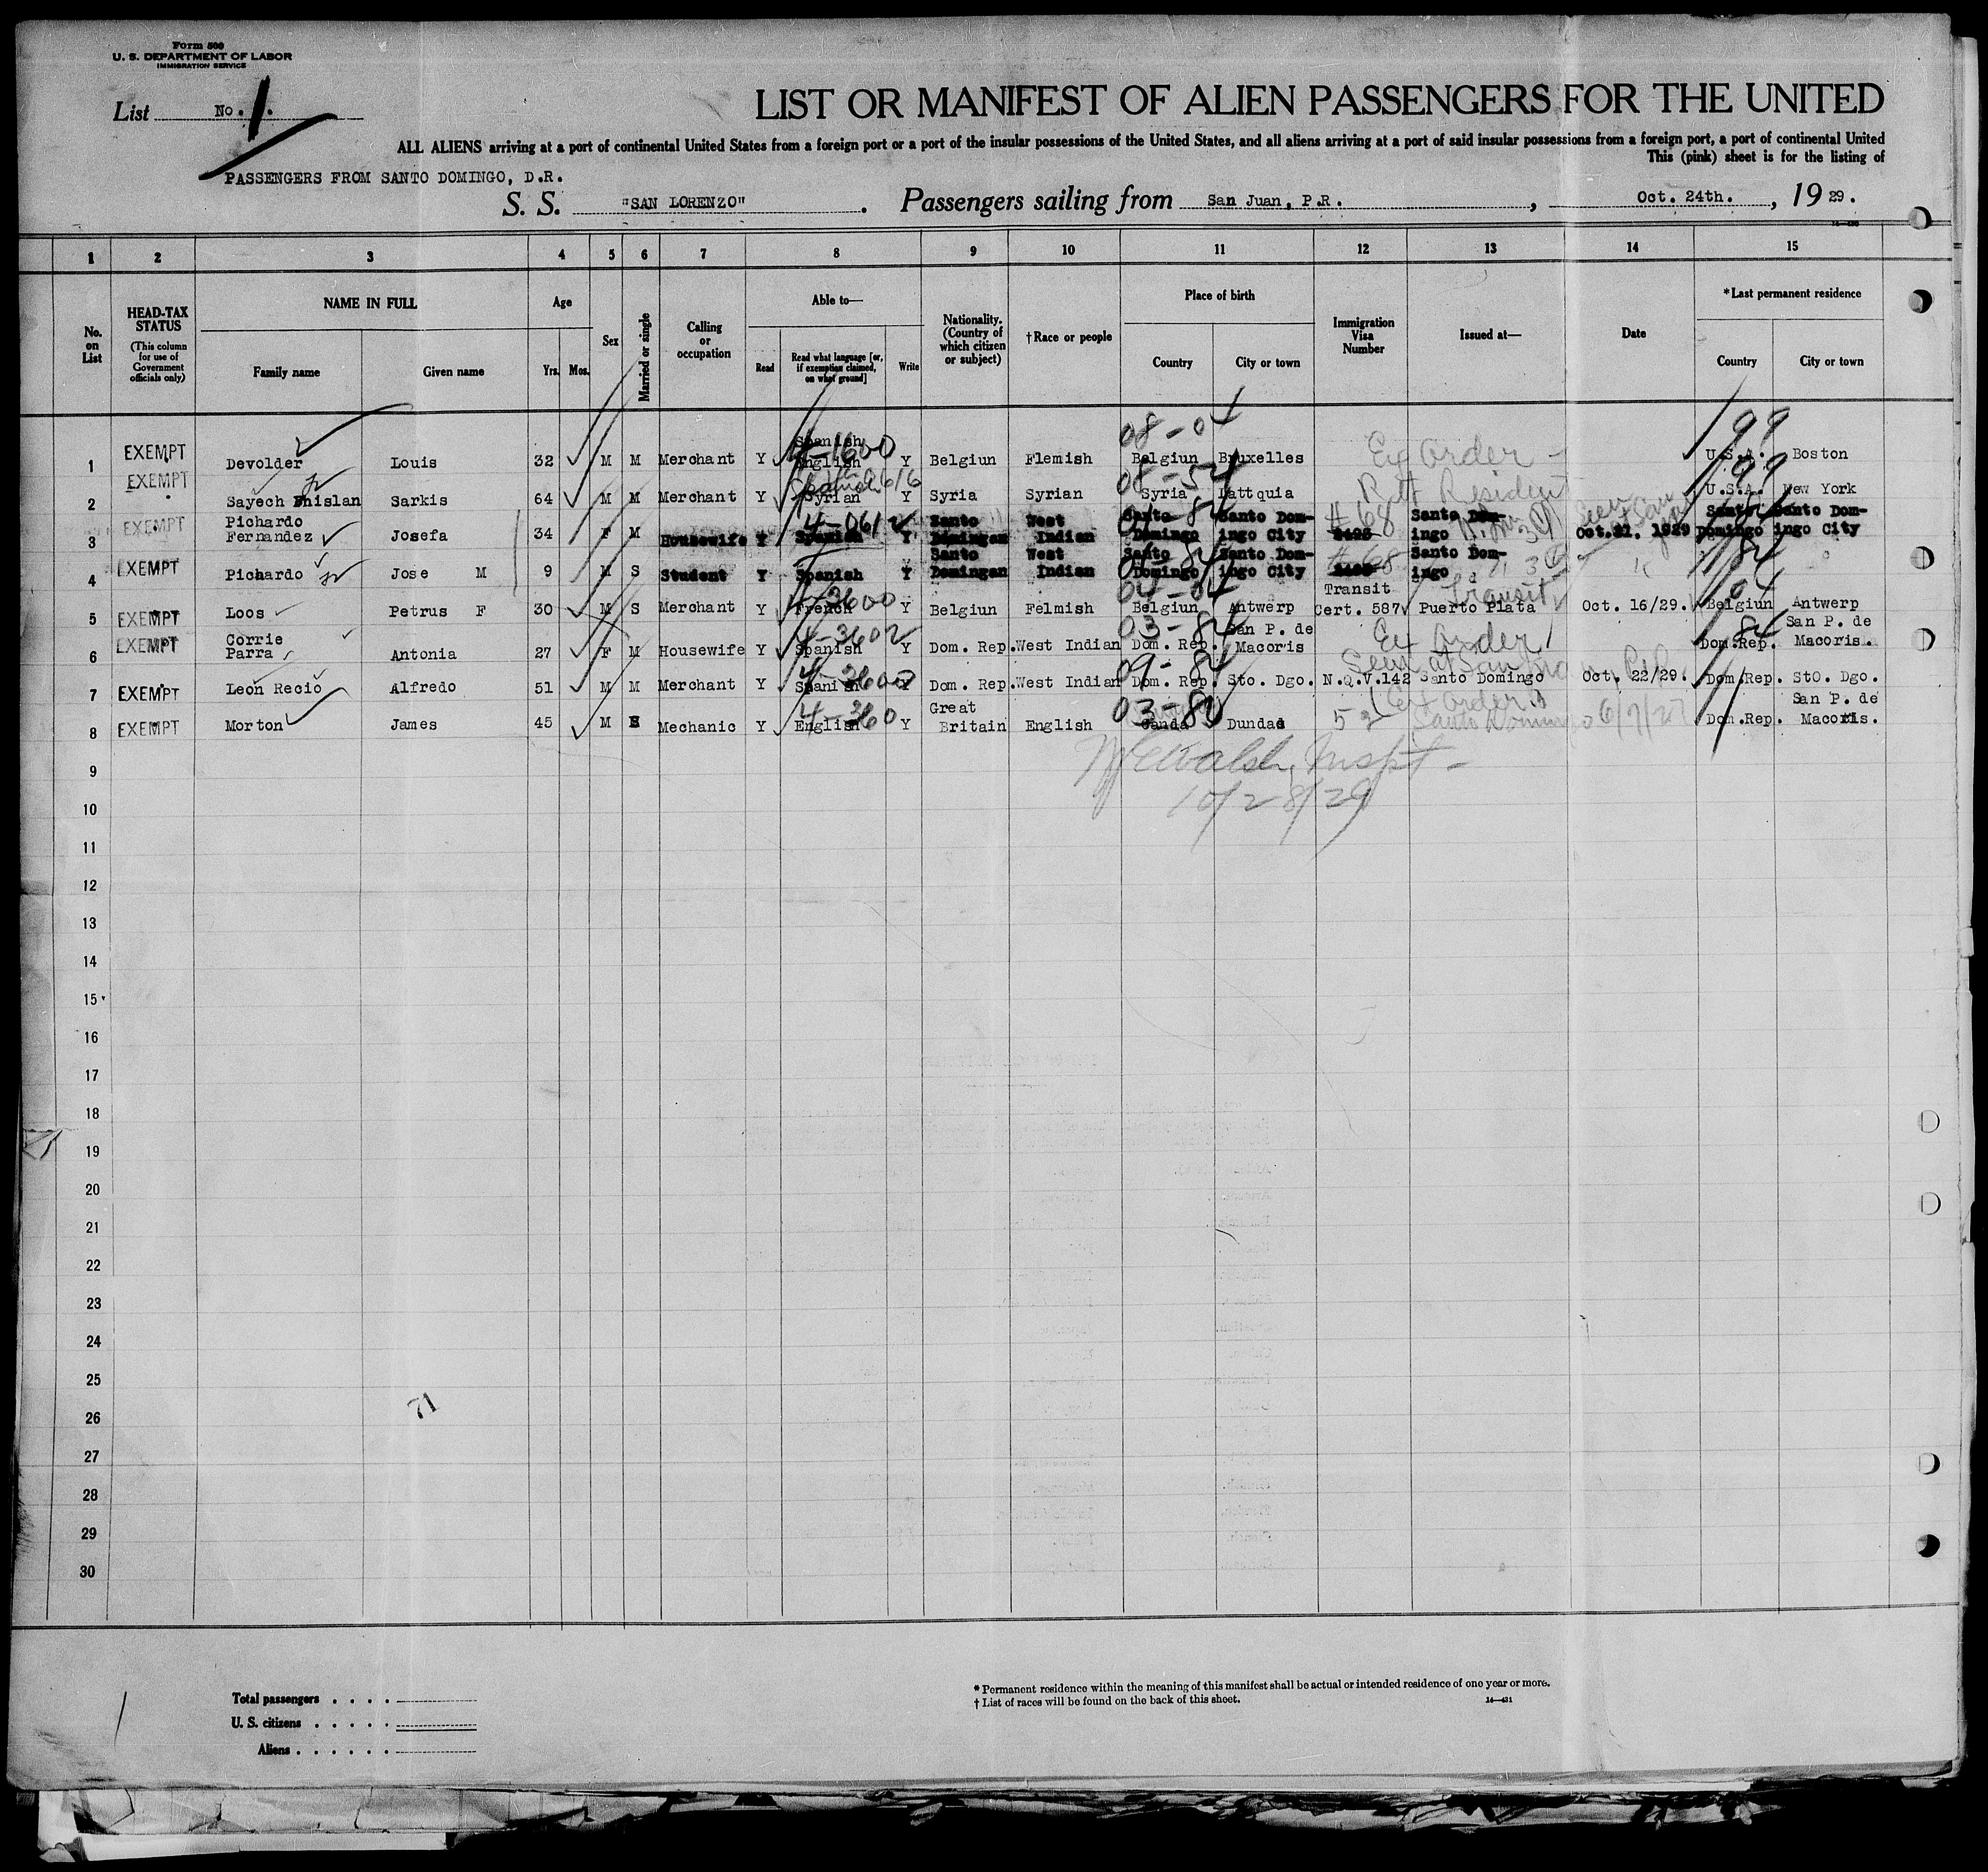 Form 500
U. S. DEPARTMENT OF LABOR
IMMIGRATION SERVICE
List No. 1.
LIST OR MANIFEST OF ALIEN PASSENGERS FOR THE UNITED
ALL ALIENS arriving at a port of continental United States from a foreign port or a port of the insular possessions of the United States, and all aliens arriving at a port of said insular possessions from a foreign port, a port of continental United
This (pink) sheet is for the listing of
PASSENGERS FROM SANTO DOMINGO, D.R.
S. S. "SAN LORENZO". Passengers sailing from San Juan, P.R., Oct. 24th., 1929.
1 2 3 4 5 6 7 8 9 10 11 12 13 14 15
No. on List
HEAD-TAX STATUS
(This column for use of Government officials only)
NAME IN FULL
Family name Given name
Age
Yrs. Mos.
Sex
Married or single
Calling or occupation
Able to—
Read
Read what language [or, if exemption claimed, on what ground]
Write
Nationality. (Country of which citizen or subject)
†Race or people
Place of birth
Country City or town
Immigration Visa Number
Issued at—
Date
*Last permanent residence
Country City or town
08-04 99
4-1600
Spanish
1 EXEMPT Devolder Louis 32 M M Merchant Y English Y Belgiun Flemish Belgiun Bruxelles Ex Order - U.S.A. Boston
2 EXEMPT Sayech Sarkis 64 M M Merchant Y Syrian Y Syria Syrian Syria Lattquia Resident U.S.A. New York
3 EXEMPT Pichardo Fernandez Josefa 34 F M Housewife Y Spanish Y Santo Domingan West Indian Santo Domingo Santo Domingo City #68 Santo Domingo Oct.21, 1929 Santo Domingo Santo Domingo City
4 EXEMPT Pichardo Jose M 9 M S Student Y Spanish Y Santo Domingan West Indian Santo Domingo Santo Domingo City #68 Santo Domingo
5 EXEMPT Loos Petrus F 30 M S Merchant Y French Y Belgiun Felmish Belgiun Antwerp Transit Cert. 587 Puerto Plata Transit Oct. 16/29. Belgiun Antwerp
6 EXEMPT Corrie Parra Antonia 27 F M Housewife Y Spanish Y Dom. Rep. West Indian Dom. Rep. San P. de Macoris Ex Order Dom.Rep. San P. de Macoris.
7 EXEMPT Leon Recio Alfredo 51 M M Merchant Y Spanish Y Dom. Rep. West Indian Dom. Rep. Sto. Dgo. N.Q.V.142 Santo Domingo Oct. 22/29. Dom.Rep. StO. Dgo.
8 EXEMPT Morton James 45 M Mechanic Y English Y Great Britain English Canda Dundas 52 Ex order Santo Domingo 6/7/27 Dom.Rep. San P. de Macoris.
Walsh, Inspt -
10/28/29
9
10
11
12
13
14
15
16
17
18
19
20
21
22
23
24
25
26
27
28
29
30
71
Total passengers . . . .
U. S. citizens . . . . .
Aliens . . . . . .
* Permanent residence within the meaning of this manifest shall be actual or intended residence of one year or more.
† List of races will be found on the back of this sheet. 14—431